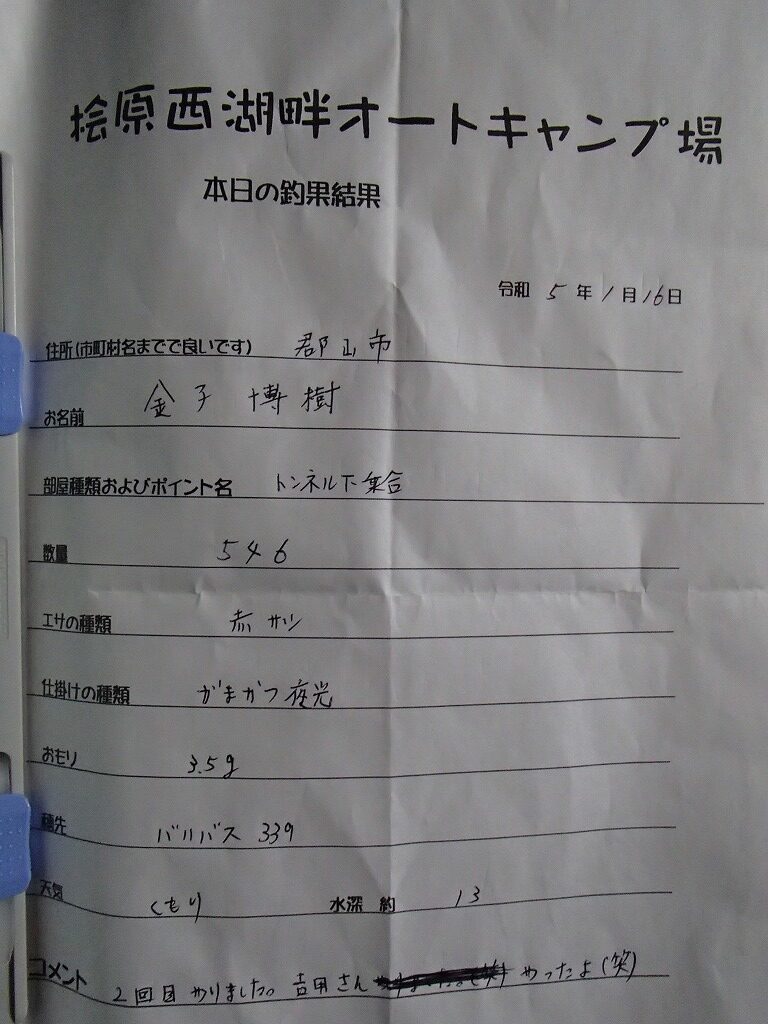 桧原西湖畔オートキャンプ場
本日の釣果結果
令和 5 年 1 月 16 日
住所(市町村名までで良いです) 郡山市
お名前 金子 博樹
部屋種類およびポイント名 トンネル下集合
数量 546
エサの種類 赤サシ
仕掛けの種類 がまかつ夜光
おもり 3.5g
穂先 バリバス 339
天気 くもり 水深 約 13
コメント 2回目やりました。吉田さん やったよ(笑)